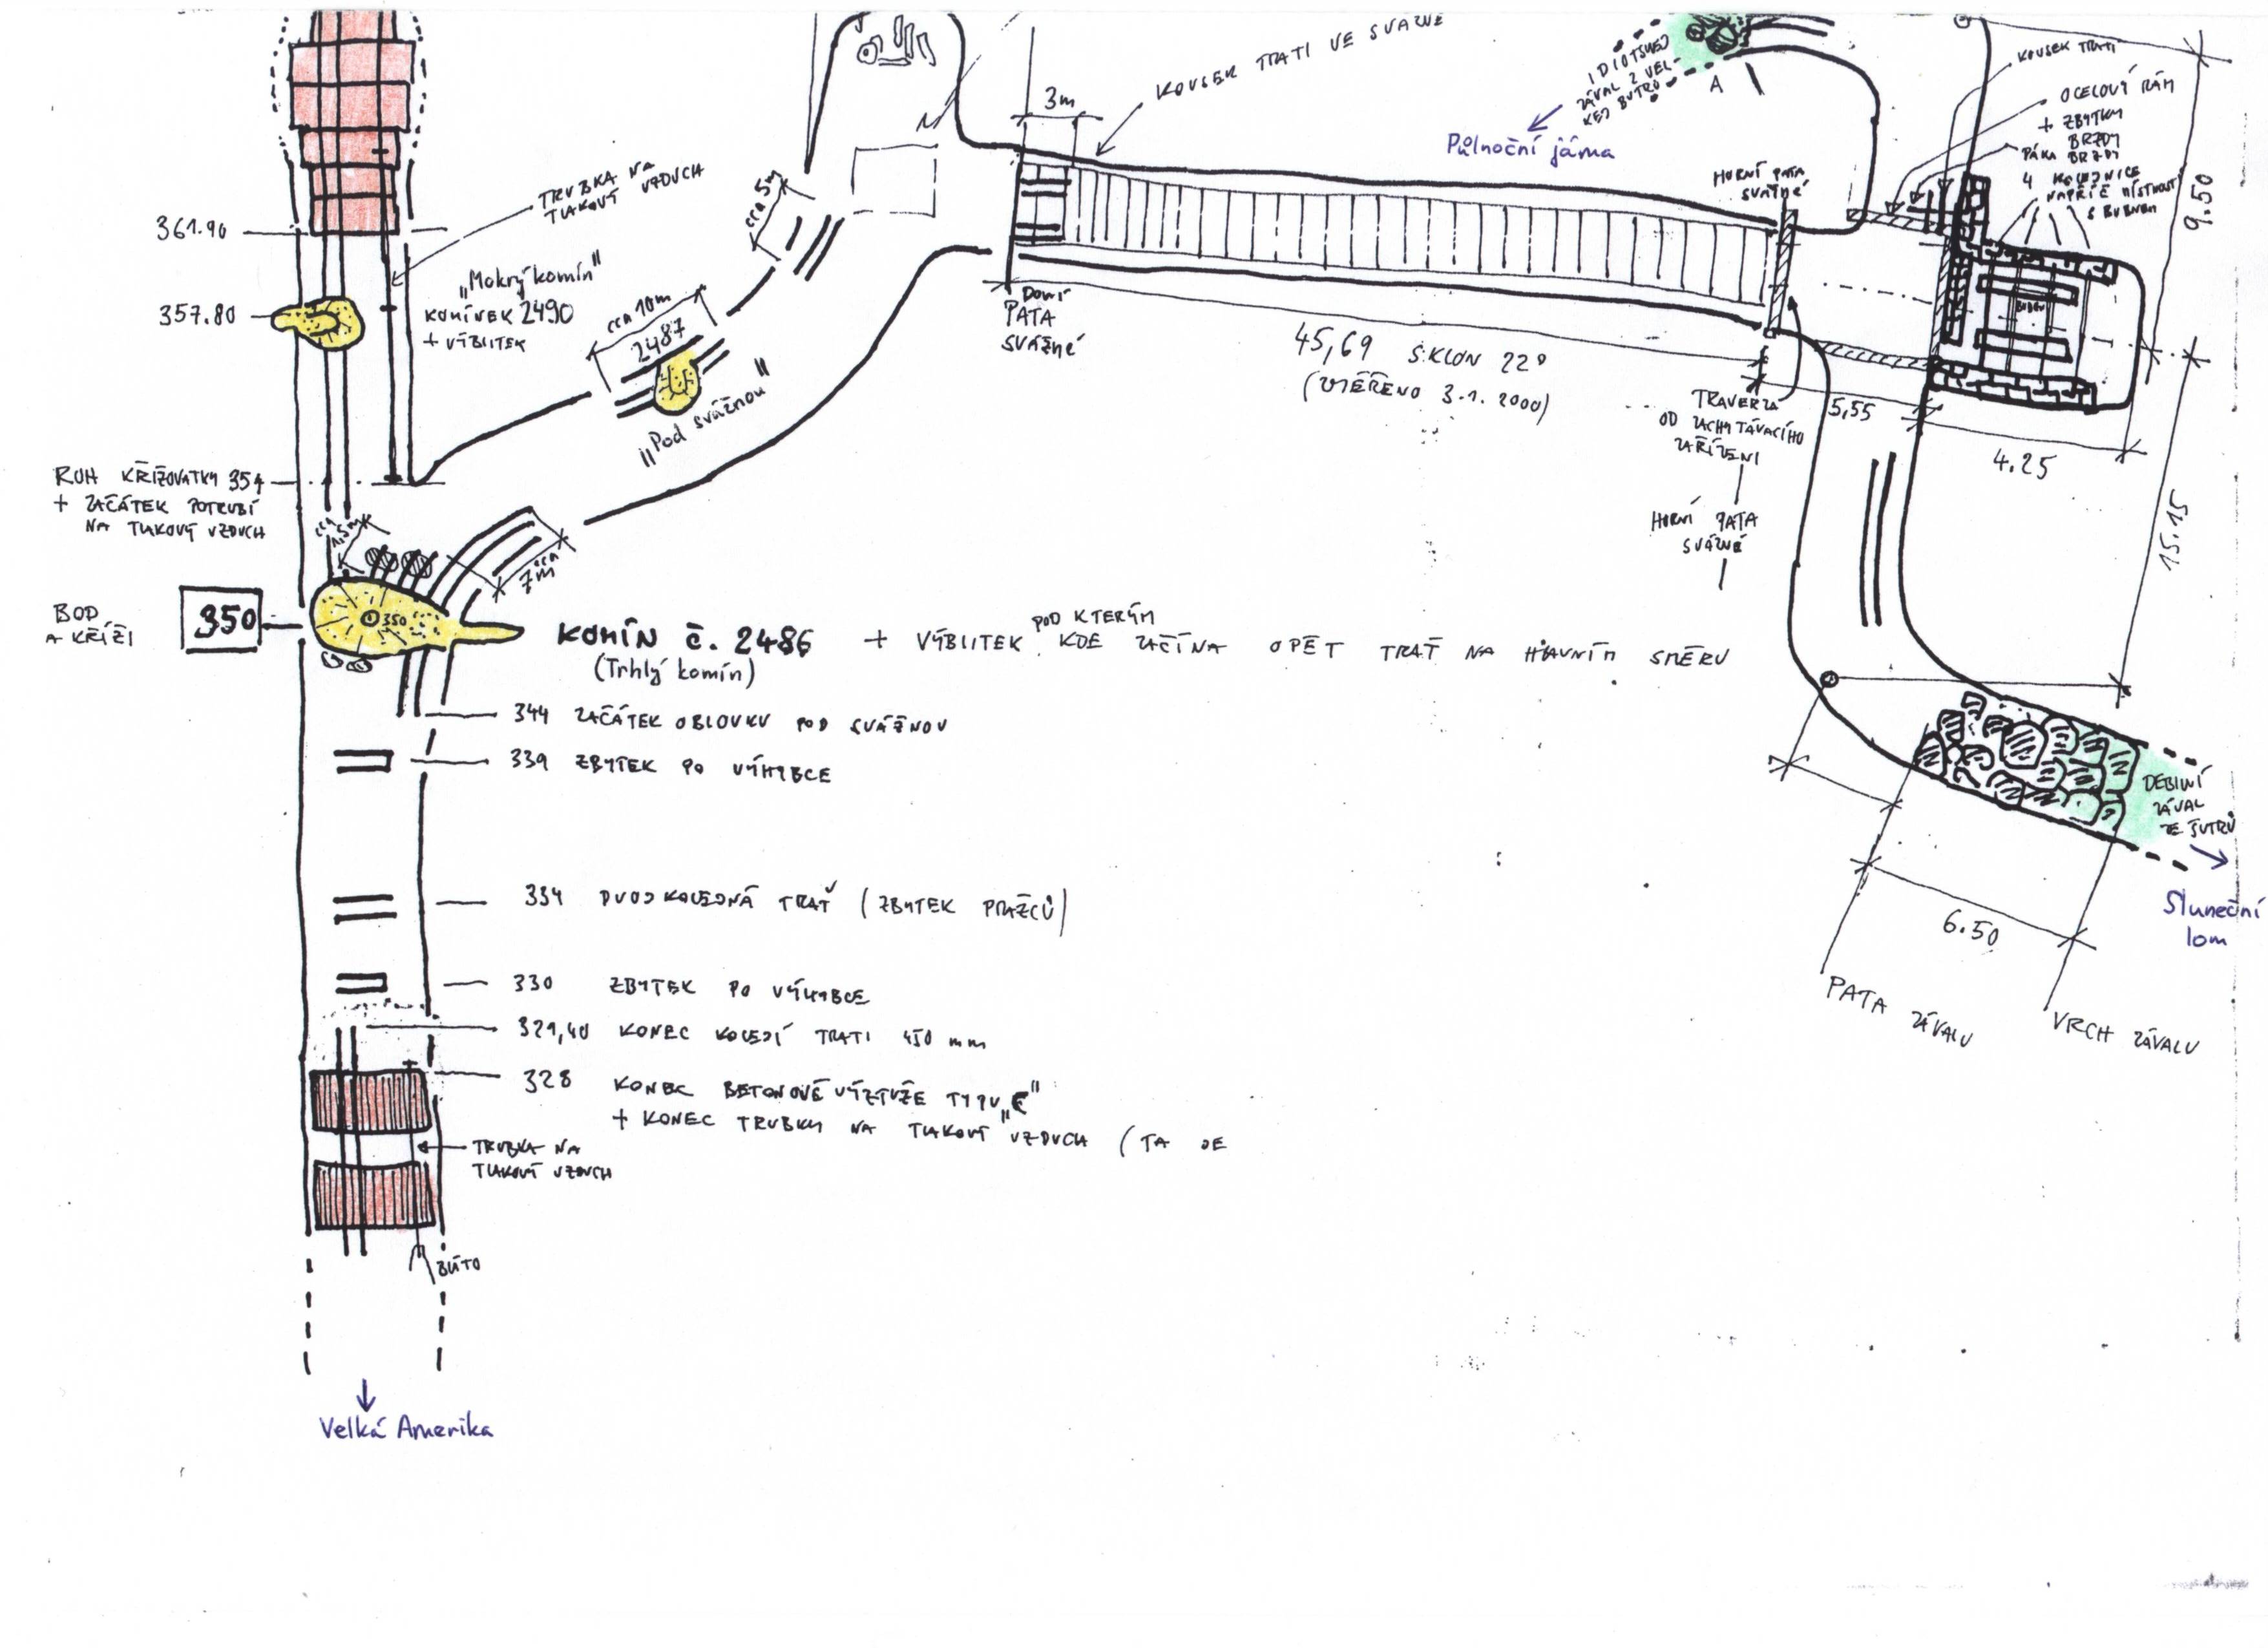 KOUSEK TRATI VE SVÁŽNÉ
3m
IDIOTSKEJ
ZÁVAL Z VEL-
KEJ ŠUTRŮ
A
Půlnoční jáma
KOUSEK TRATI
OCELOVÝ RÁM
+ ZBYTKY
BRZDY
PÁKA BRZDY
4 KOLEJNICE
NAPŘÍČ MÍSTNOSTÍ
S BUBNEM
BUBEN
9.50
HORNÍ PATA
SVÁŽNÉ
TRUBKA NA
TLAKOVÝ VZDUCH
cca 5m
361.90
357.80
„Mokrý komín"
KOMÍNEK 2490
+ VÝBLITEK
cca 10m
2487
„Pod svážnou"
DOLNÍ
PATA
SVÁŽNÉ
45,69 SKLON 22°
(MĚŘENO 3.1. 2000)
TRAVERZA
OD ZACHYTÁVACÍHO
ZAŘÍZENÍ
HORNÍ PATA
SVÁŽNÉ
5,55
4.25
15.15
ROH KŘIŽOVATKY 354
+ ZAČÁTEK POTRUBÍ
NA TLAKOVÝ VZDUCH
cca
1,5m
cca
7m
BOD
A KŘÍŽÍ
350
350
KOMÍN č. 2486 + VÝBLITEK POD KTERÝM KDE ZAČÍNA OPĚT TRAŤ NA HLAVNÍM SMĚRU
(Trhlý komín)
344 ZAČÁTEK OBLOUKU POD SVÁŽNOU
339 ZBYTEK PO VÝHYBCE
334 DVOJKOLEJNÁ TRAŤ (ZBYTEK PRAŽCŮ)
330 ZBYTEK PO VÝHYBCE
329,40 KONEC KOLEJÍ TRATI 450 mm
328 KONEC BETONOVÉ VÝZTUŽE TYPU „C"
+ KONEC TRUBKY NA TLAKOVÝ VZDUCH (TA JE
TRUBKA NA
TLAKOVÝ VZDUCH
BLÁTO
Velká Amerika
DEBILNÍ
ZÁVAL
ZE ŠUTRŮ
Sluneční
lom
6.50
PATA ZÁVALU
VRCH ZÁVALU